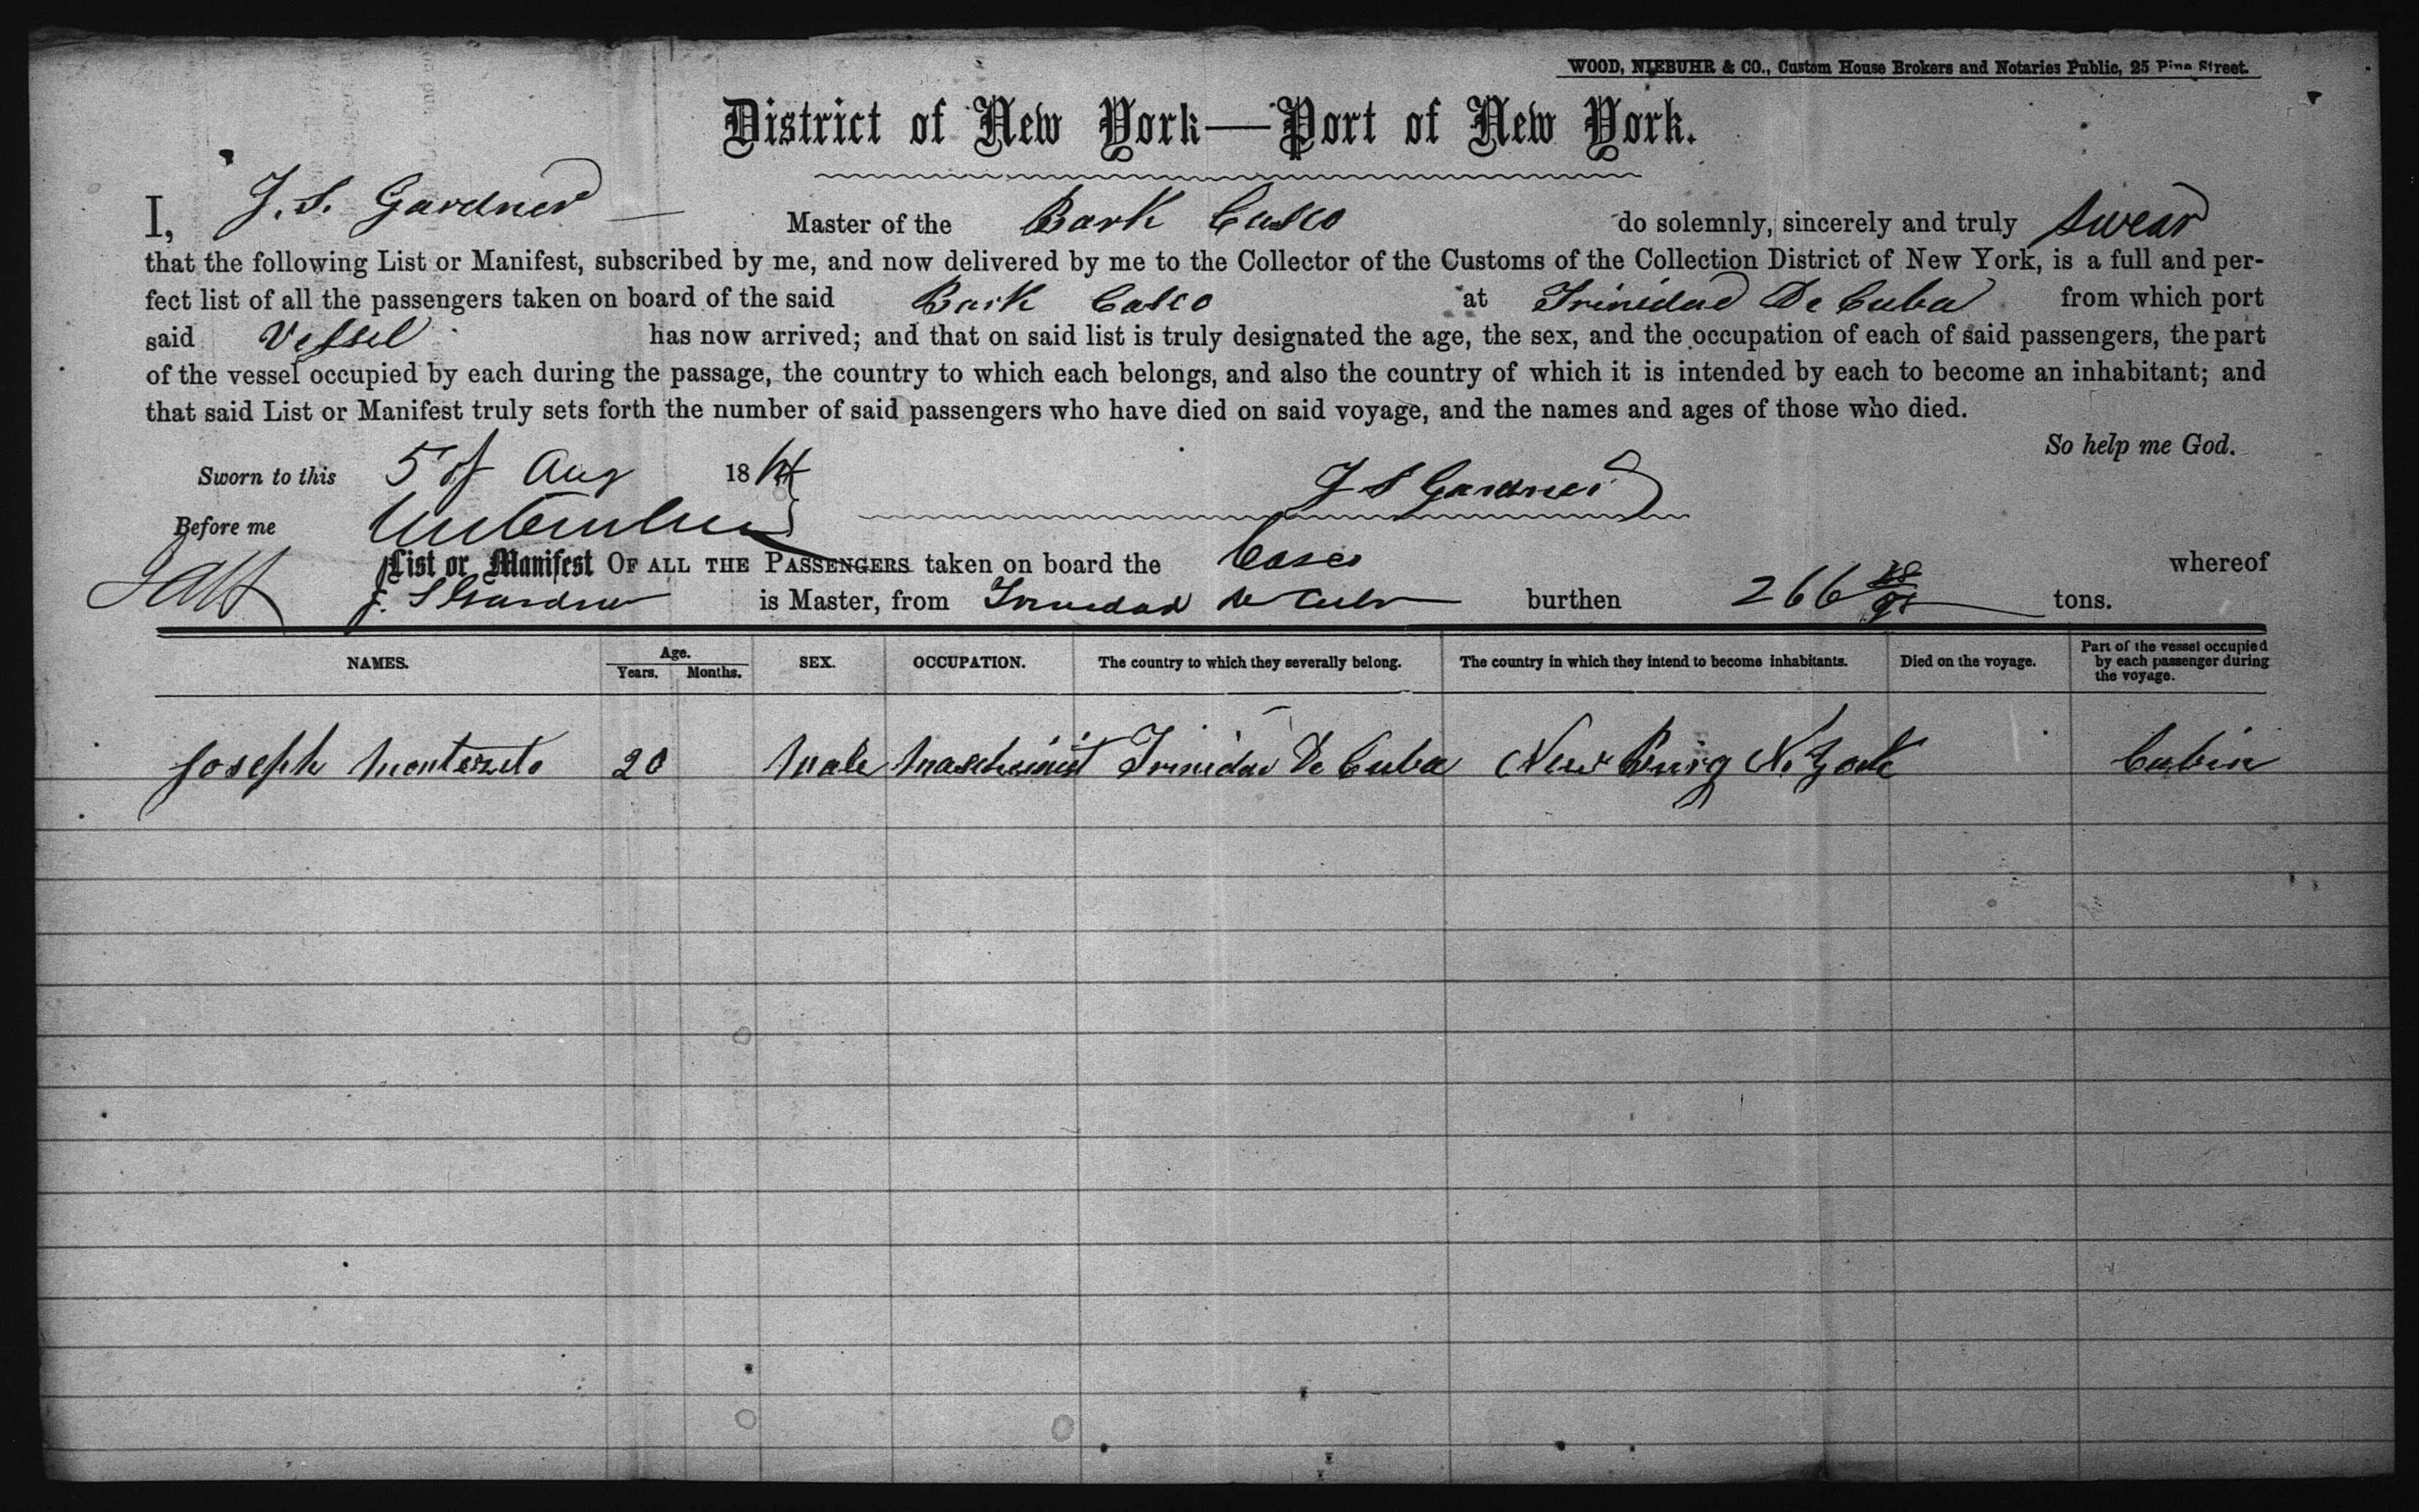 WOOD, NIEBUHR & CO., Custom House Brokers and Notaries Public, 25 Pine Street.
District of New York—Port of New York.
I, J. S. Gardner — Master of the Bark Casco do solemnly, sincerely and truly swear
that the following List or Manifest, subscribed by me, and now delivered by me to the Collector of the Customs of the Collection District of New York, is a full and per-
fect list of all the passengers taken on board of the said Bark Casco at Trinidad De Cuba from which port
said Vessel has now arrived; and that on said list is truly designated the age, the sex, and the occupation of each of said passengers, the part
of the vessel occupied by each during the passage, the country to which each belongs, and also the country of which it is intended by each to become an inhabitant; and
that said List or Manifest truly sets forth the number of said passengers who have died on said voyage, and the names and ages of those who died.
So help me God.
Sworn to this 5 of Aug 18 J S Gardner
Before me
List or Manifest OF ALL THE PASSENGERS taken on board the Casco whereof
J. S Gardner is Master, from Trinidad de Cuba burthen 266 tons.
NAMES. Age. Years. Months. SEX. OCCUPATION. The country to which they severally belong. The country in which they intend to become inhabitants. Died on the voyage. Part of the vessel occupied by each passenger during the voyage.
Joseph 20 Male Maschinist Trinidad De Cuba New Burg N. York Cabin